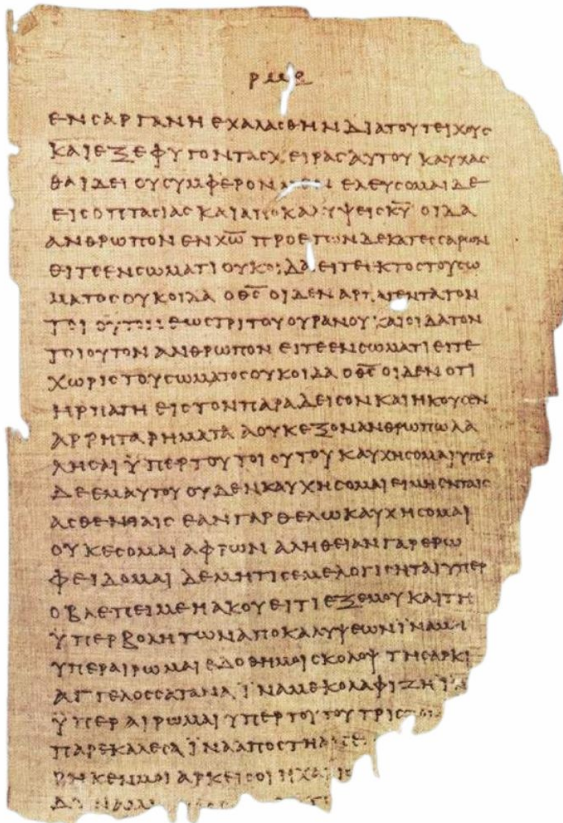 ρμε
ΕΝ ΣΑΡΓΑΝΗ ΕΧΑΛΑΣΘΗΝ ΔΙΑ ΤΟΥ ΤΕΙΧΟΥΣ
ΚΑΙ ΕΞΕΦΥΓΟΝ ΤΑΣ ΧΕΙΡΑΣ ΑΥΤΟΥ ΚΑΥΧΑΣ
ΘΑΙ ΔΕΙ ΟΥ ΣΥΜΦΕΡΟΝ ΕΛΕΥΣΟΜΑΙ ΔΕ
ΕΙΣ ΟΠΤΑΣΙΑΣ ΚΑΙ ΑΠΟΚΑΛΥΨΕΙΣ Κ̅Υ̅ ΟΙΔΑ
ΑΝΘΡΩΠΟΝ ΕΝ Χ̅Ω̅ ΠΡΟ ΕΤΩΝ ΔΕΚΑΤΕΣΣΑΡΩΝ
ΕΙΤΕ ΕΝ ΣΩΜΑΤΙ ΟΥΚ ΟΙΔΑ ΕΙΤΕ ΕΚΤΟΣ ΤΟΥ ΣΩ
ΜΑΤΟΣ ΟΥΚ ΟΙΔΑ Ο Θ̅Σ̅ ΟΙΔΕΝ ΑΡΠΑΓΕΝΤΑ ΤΟΝ
ΤΟΙΟΥΤΟΝ ΕΩΣ ΤΡΙΤΟΥ ΟΥΡΑΝΟΥ ΚΑΙ ΟΙΔΑ ΤΟΝ
ΤΟΙΟΥΤΟΝ ΑΝΘΡΩΠΟΝ ΕΙΤΕ ΕΝ ΣΩΜΑΤΙ ΕΙΤΕ
ΧΩΡΙΣ ΤΟΥ ΣΩΜΑΤΟΣ ΟΥΚ ΟΙΔΑ Ο Θ̅Σ̅ ΟΙΔΕΝ ΟΤΙ
ΗΡΠΑΓΗ ΕΙΣ ΤΟΝ ΠΑΡΑΔΕΙΣΟΝ ΚΑΙ ΗΚΟΥΣΕΝ
ΑΡΡΗΤΑ ΡΗΜΑΤΑ Α ΟΥΚ ΕΞΟΝ ΑΝΘΡΩΠΩ ΛΑ
ΛΗΣΑΙ ΫΠΕΡ ΤΟΥ ΤΟΙΟΥΤΟΥ ΚΑΥΧΗΣΟΜΑΙ ΥΠΕΡ
ΔΕ ΕΜΑΥΤΟΥ ΟΥΔΕΝ ΚΑΥΧΗΣΟΜΑΙ ΕΙ ΜΗ ΕΝ ΤΑΙΣ
ΑΣΘΕΝΕΙΑΙΣ ΕΑΝ ΓΑΡ ΘΕΛΩ ΚΑΥΧΗΣΟΜΑΙ
ΟΥΚ ΕΣΟΜΑΙ ΑΦΡΩΝ ΑΛΗΘΕΙΑΝ ΓΑΡ ΕΡΩ
ΦΕΙΔΟΜΑΙ ΔΕ ΜΗ ΤΙΣ ΕΜΕ ΛΟΓΙΣΗΤΑΙ ΥΠΕΡ
Ο ΒΛΕΠΕΙ ΜΕ Η ΑΚΟΥΕΙ ΤΙ ΕΞ ΕΜΟΥ ΚΑΙ ΤΗ
ΫΠΕΡΒΟΛΗ ΤΩΝ ΑΠΟΚΑΛΥΨΕΩΝ ΪΝΑ ΜΗ
ΥΠΕΡΑΙΡΩΜΑΙ ΕΔΟΘΗ ΜΟΙ ΣΚΟΛΟΨ ΤΗ ΣΑΡΚΙ
ΑΓΓΕΛΟΣ ΣΑΤΑΝΑ ΪΝΑ ΜΕ ΚΟΛΑΦΙΖΗ ΪΝ
ΫΠΕΡΑΙΡΩΜΑΙ ΥΠΕΡ ΤΟΥΤΟΥ ΤΡΙΣ
ΠΑΡΕΚΑΛΕΣΑ ΪΝΑ ΑΠΟΣΤΗ Α
ΡΗΚΕΝ ΜΟΙ ΑΡΚΕΙ ΣΟΙ Η ΧΑΡΙΣ